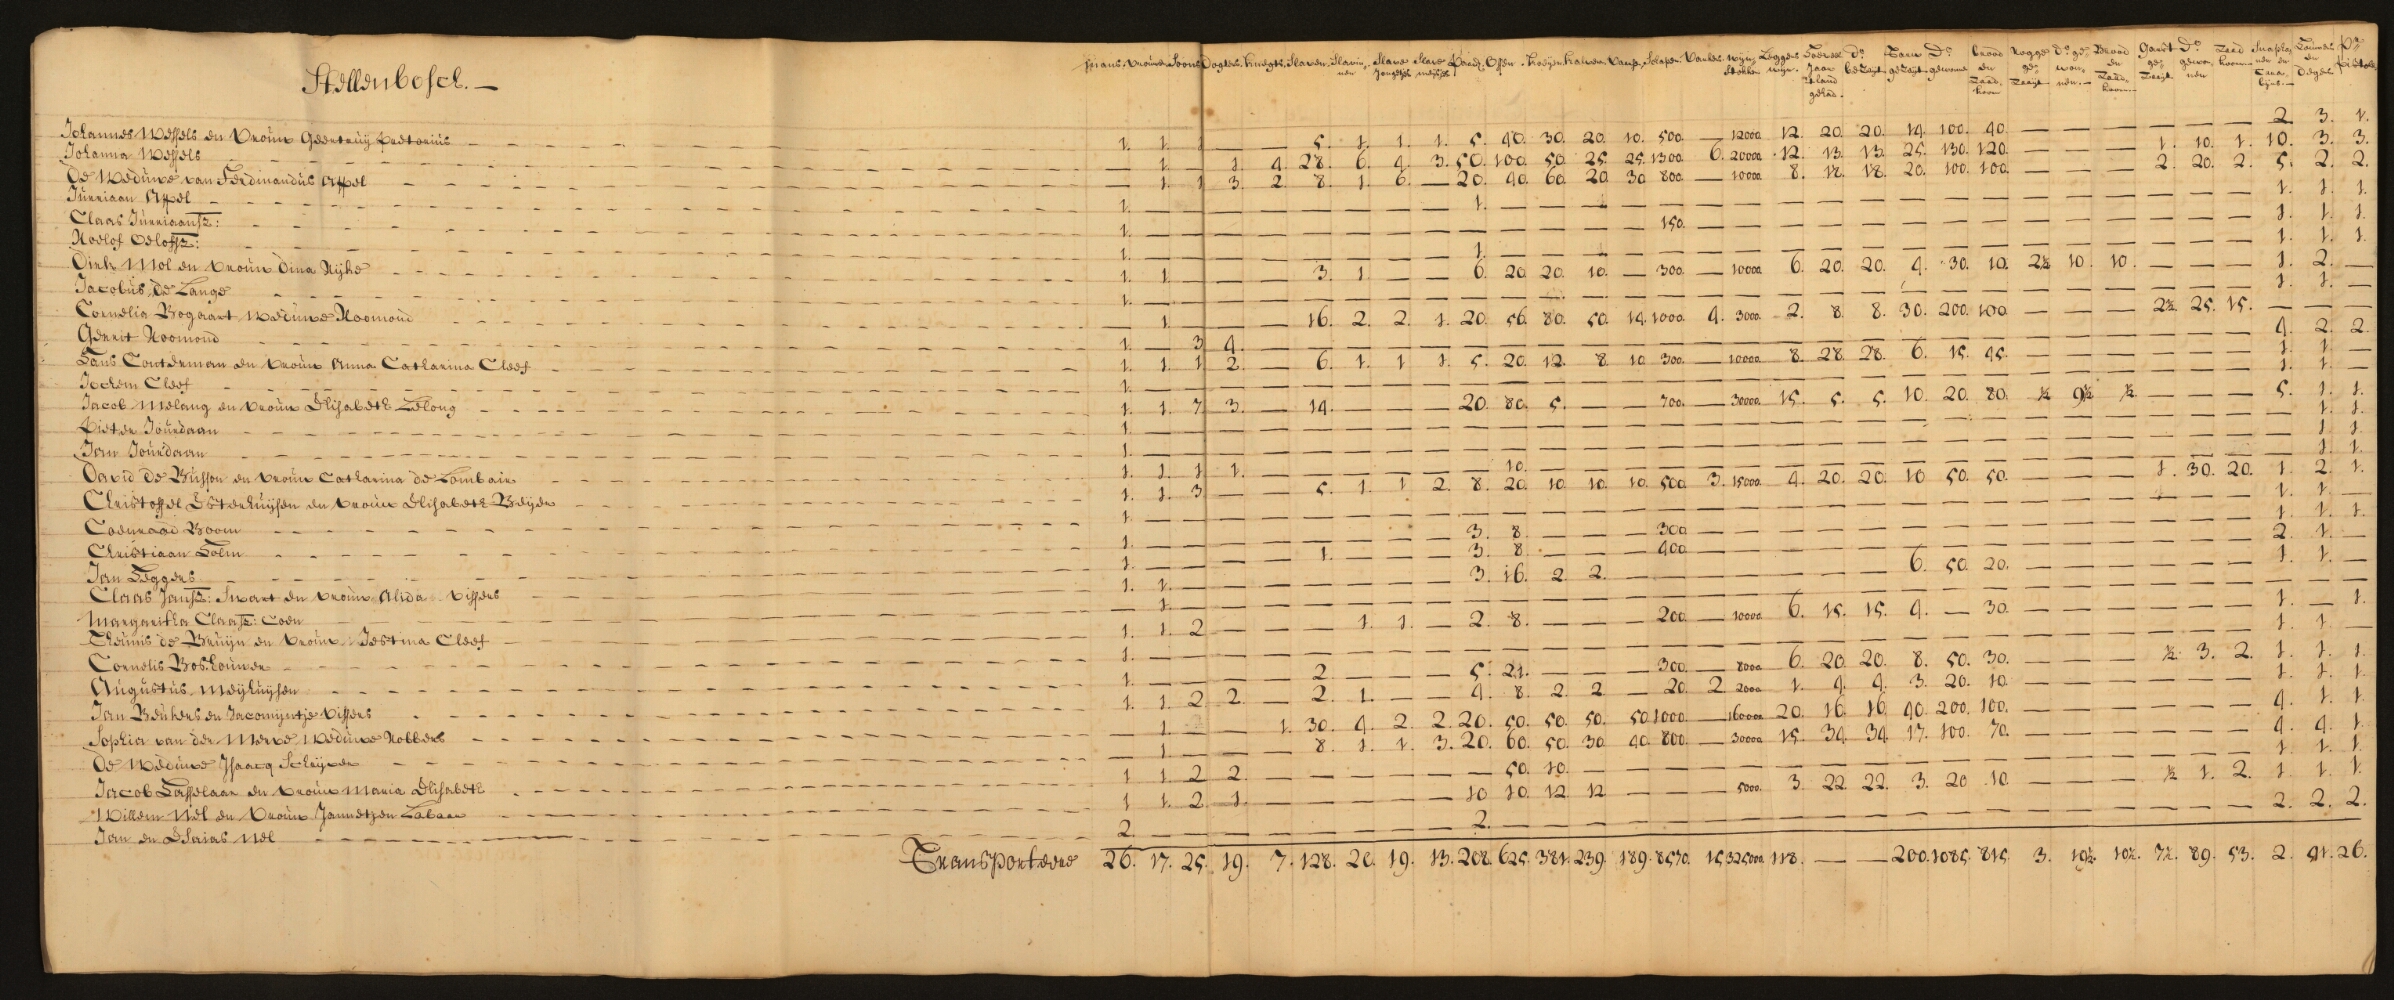 Stellenbosch. —
Mans. Vrouwe. Soons. Dogters. knegts. Slaven. Slavinnen Slave Jongetjes Slave meijsjes Paarde. Ossen. koeijen. kalvere. Vaarse. Schapen. Varkens. wijng: Stokken Leggers wijn. D:o beZaijt. Tarw geZaijt D:o gewonne Brood en Zaad koorn Rogge geZaaijt D:o gewonnen. Brood en Zaad koorn. Garst geZaijt D:o gewonnen Zaad koorn Snaphanen en Carabijns. Houwers en Degens P:r Pistole
Johannes Wessels en vrouw Geertruij Pretorius 1. 1. 1 — — 5. 1. 1. 1. 5. 40. 30. 20. 10. 500. — 12000. 12. 20. 20. 14. 100. 40. — — — — — — 2. 3. 1.
Johanna Wessels — 1. — 1. 4. 28. 6. 4. 3. 50. 100. 50. 25. 25. 1300. 6. 20000. 12. 13. 13. 25. 130. 120. — — — 1. 10. 1. 10. 3. 3.
De Weduwe van Ferdinandus Appel — 1. 1 3. 2. 8. 1. 6. — 20. 40. 60. 20. 30 800. — 10000. 8. 18. 18. 20. 100. 100. — — — 2. 20. 2. 5. 2. 2.
Jurriaan Appel 1. — 1. — 1. 1. 1.
Claas Jurriaansz: 1. — 150. — 1. 1. 1.
Roelof Oelofsz: 1. — 1. — 1. 1. 1.
Dirk Mol en vrouw Dina Rijke 1. 1. — 3. 1. — — 6. 20. 20. 10. — 300. — 10000. 6. 20. 20. 4. 30. 10. 2½ 10. 10. — — — 1. 2. —
Jacobus de Lange 1. — 1. 1. —
Cornelia Bogaart Weduwe Roomond — 1. — 16. 2. 2. 1. 20. 56. 80. 50. 14. 1000. 4. 3000. 2. 8. 8. 30. 200. 100. — — — 2½. 25. 15. — — —
Gerrit Roomond 1. — 3 4. — 4. 2. 2.
Hans Conterman en vrouw Anna Catharina Cleef 1. 1. 1 2. — 6. 1. 1. 1. 5. 20. 12. 8. 10. 300. — 10000. 8. 28. 28. 6. 15. 45. — — — — — — 1. 1. —
Jochem Cleef 1. — 1. 1. —
Jacob Melang en vrouw Elisabeth Delong 1. 1. 7 3. — 14. — — — 20. 80. 5. — — 700. — 30000. 15. 5. 5. 10. 20. 80. ½ 9½ ½ — — — 5. 1. 1.
Pieter Jourdaan 1. — 1. 1.
Jan Jourdaan 1. — 1. 1.
David de Buisson en vrouw Catharina de Lombair 1. 1. 1 1. — 10. — 1. 1.
Christoffel Esterhuijsen en vrouw Elisabeth Beijer 1. 1. 3 — — 5. 1. 1. 2. 8. 20. 10. 10. 10. 500. 3. 15000. 4. 20. 20. 10 50. 50. — — — 1. 30. 20. 1. 2. 1.
Coenraad Boom 1. — 1. 1. —
Christiaan Holm 1. — 3. 8. — 300. — 1. 1. 1.
Jan Eggers 1. — 1. — 3. 8. — 400. — 2. 1. —
Claas Jansz: Swart en vrouw Alida Vissers 1. 1. — 3. 16. 2. 2. — 6. 50. 20. — 1. 1. —
Margaritha Claasz: Coen — 1. —
Theunis de Bruijn en vrouw Jestina Cleef 1. 1. 2 — 1. 1. — 2. 8. — 200. — 10000. 6. 15. 15. 4. — 30. — 1. — 1.
Cornelis Boshouwer 1. — 1. 1. —
Augustus Meijhuijsen 1. — 2. — 5. 21. — 300. — 8000. 6. 20. 20. 8. 50. 30. — — — ½. 3. 2. 1. 1. 1.
Jan Beukers en Jacomijntje Vissers 1. 1. 2 2. — 2. 1. — — 4. 8. 2. 2. — 20. 2. 2000. 1. 4. 4. 3. 20. 10. — 1. 1. 1.
Sophia van der Merwe Weduwe Robbers 1. — 1. 30. 4. 2. 2. 20. 50. 50. 50. 50 1000. — 160000. 20. 16. 16. 40. 200. 100. — 4. 1. 1.
De Weduwe Jsaacq Schrijver — 1. — 8. 1. 1. 3. 20. 60. 50. 30. 40. 800. — 30000. 15. 34. 34. 17. 100. 70. — 4. 4. 1.
Jacob Hasselaar en vrouw Maria Elisabeth 1 1. 2 2. — 50. 10. — 1. 1. 1.
Willem Nel en vrouw Jannetjen Labaar 1 1. 2 1. — 10 10. 12. 12 — 5000. 3. 22. 22. 3. 20 10. — — — ½ 1. 2. 1. 1. 1.
Jan en Esaias Nel 2. — 2. — 2. 2. 2.
Transportere 26. 17. 25. 19. 7. 128. 20. 19. 13. 208. 625. 381. 239. 189. 8570. 15. 325000. 118. — — 200. 1085. 815. 3. 19½. 10½. 7½. 89. 53. 2. 51. 26.